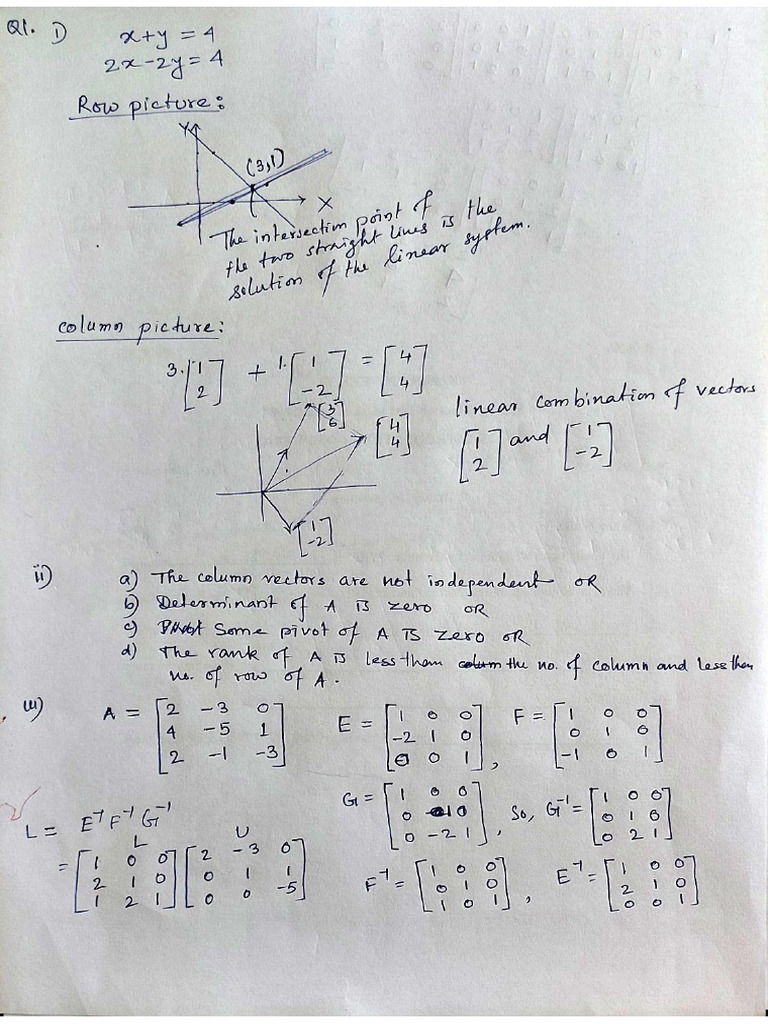 Q1. i) x+y = 4
2x-2y = 4
Row picture:
Y
(3,1)
X
The intersection point of
the two straight lines is the
solution of the linear system.
column picture:
3.[1 2] + 1.[1 -2] = [4 4]
[3 6]
[4 4]
linear combination of vectors
[1 2] and [1 -2]
[1 -2]
ii) a) The column vectors are not independent OR
b) Determinant of A is zero OR
c) Some pivot of A is zero OR
d) The rank of A is less than the no. of column and less than
no. of row of A.
iii) A = [2 -3 0; 4 -5 1; 2 -1 -3] E = [1 0 0; -2 1 0; 0 0 1], F = [1 0 0; 0 1 0; -1 0 1]
G = [1 0 0; 0 1 0; 0 -2 1], So, G⁻¹ = [1 0 0; 0 1 0; 0 2 1]
L = E⁻¹ F⁻¹ G⁻¹
L U
= [1 0 0; 2 1 0; 1 2 1] [2 -3 0; 0 1 1; 0 0 -5] F⁻¹ = [1 0 0; 0 1 0; 1 0 1], E⁻¹ = [1 0 0; 2 1 0; 0 0 1]